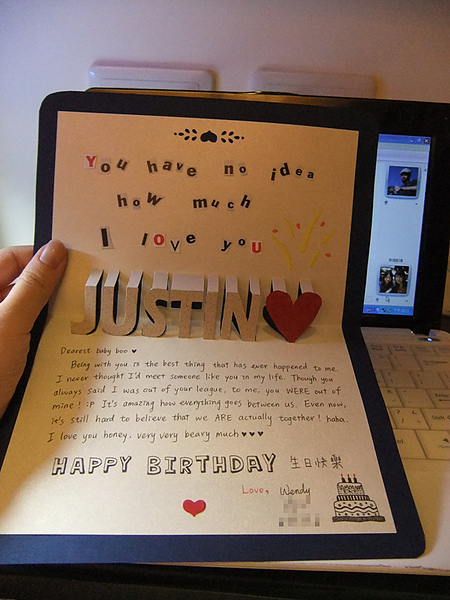 You have no idea
how much
I love you
JUSTIN
Dearest baby boo ♥
Being with you is the best thing that has ever happened to me.
I never thought I'd meet someone like you in my life. Though you
always said I was out of your league, to me, you WERE out of
mine! :P It's amazing how everything goes between us. Even now,
it's still hard to believe that we ARE actually together! haha.
I love you honey. very very beary much ♥♥♥
HAPPY BIRTHDAY 生日快樂
Love, Wendy